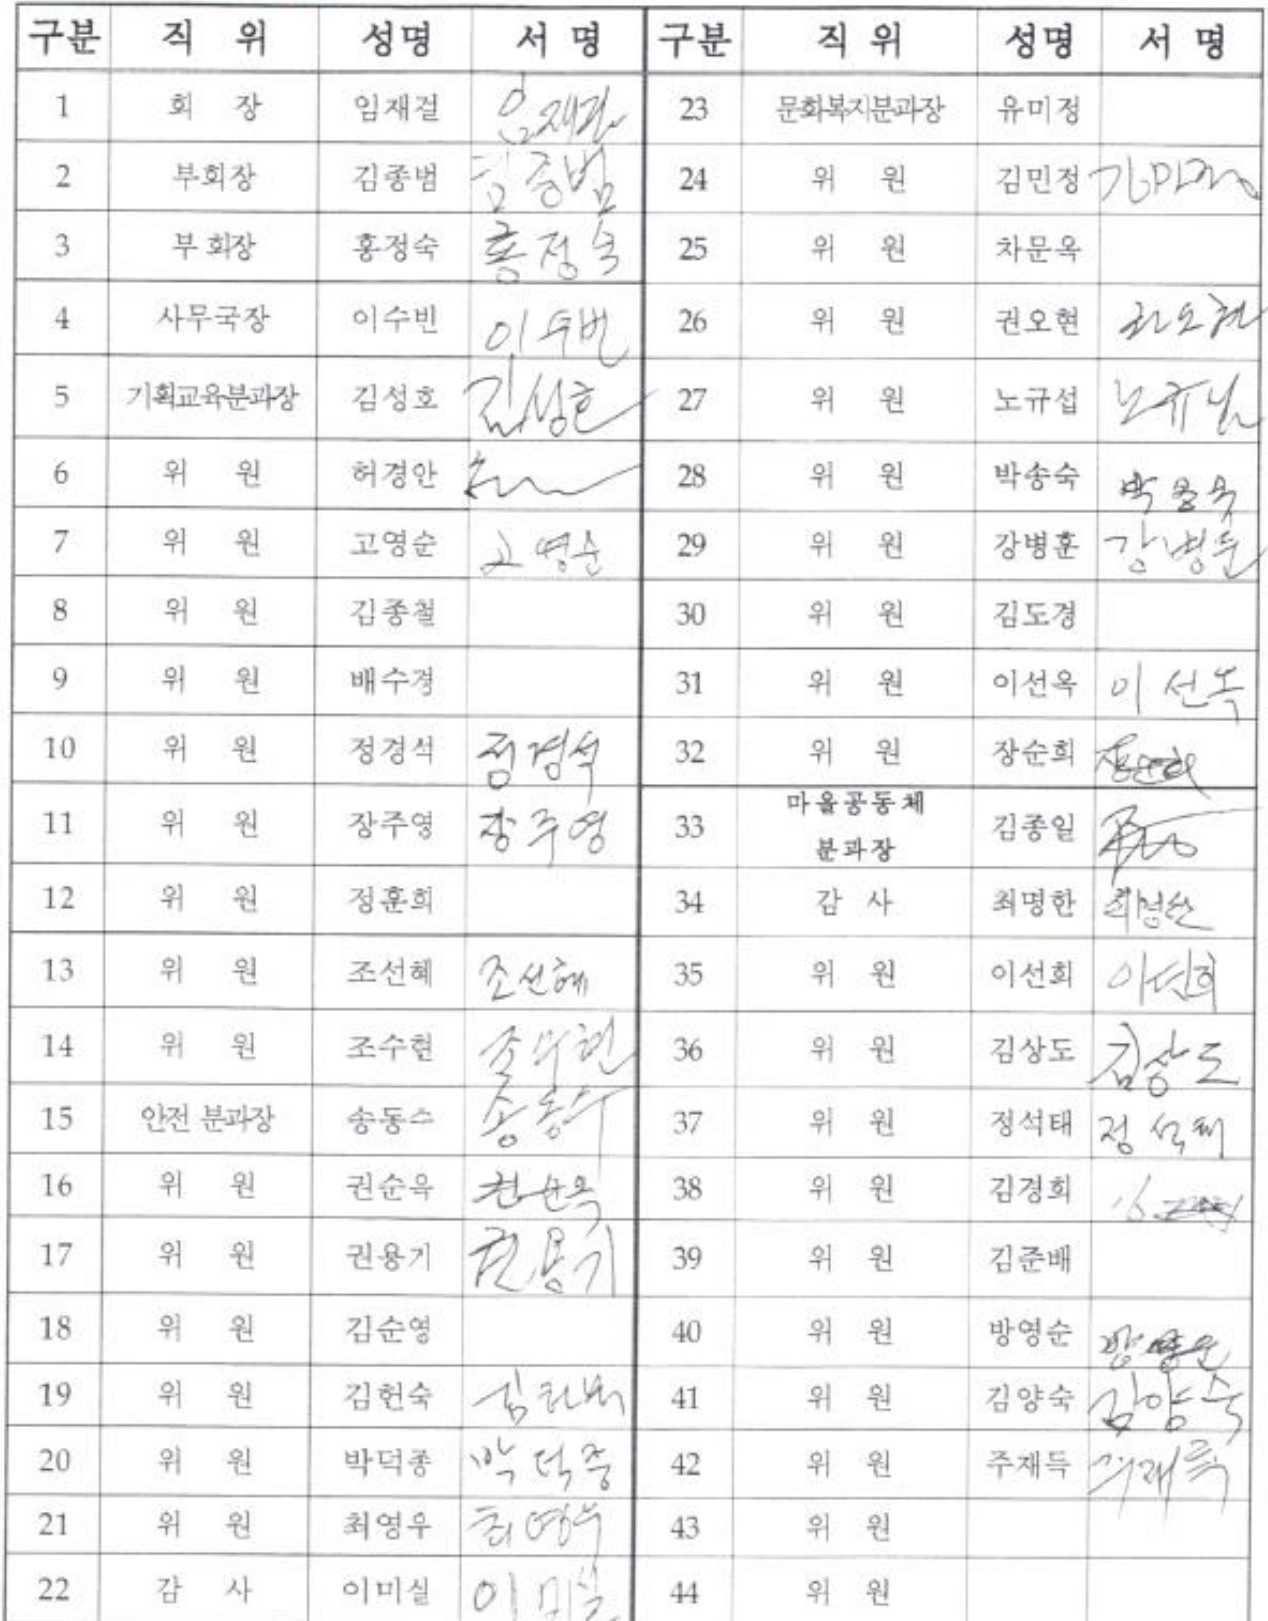 구분 직 위 성명 서 명 구분 직 위 성명 서 명
1 회 장 임재걸 임재걸 23 문화복지분과장 유미정
2 부회장 김종범 김종범 24 위 원 김민정 김민정
3 부회장 홍정숙 홍정숙 25 위 원 차문옥
4 사무국장 이수빈 이수빈 26 위 원 권오현 권오현
5 기획교육분과장 김성호 김성호 27 위 원 노규섭 노규섭
6 위 원 허경안 28 위 원 박송숙 박송숙
7 위 원 고영순 고영순 29 위 원 강병훈 강병훈
8 위 원 김종철 30 위 원 김도경
9 위 원 배수경 31 위 원 이선옥 이선옥
10 위 원 정경석 정경석 32 위 원 장순희 장순희
11 위 원 장주영 장주영 33 마을공동체 분과장 김종일
12 위 원 정훈희 34 감 사 최명한 최명한
13 위 원 조선혜 조선혜 35 위 원 이선희 이선희
14 위 원 조수현 조수현 36 위 원 김상도 김상도
15 안전 분과장 송동수 송동수 37 위 원 정석태 정석태
16 위 원 권순옥 권순옥 38 위 원 김경희
17 위 원 권용기 권용기 39 위 원 김준배
18 위 원 김순영 40 위 원 방영순 방영순
19 위 원 김헌숙 김헌숙 41 위 원 김양숙 김양숙
20 위 원 박덕종 박덕종 42 위 원 주재득 주재득
21 위 원 최영우 최영우 43 위 원
22 감 사 이미실 이미실 44 위 원